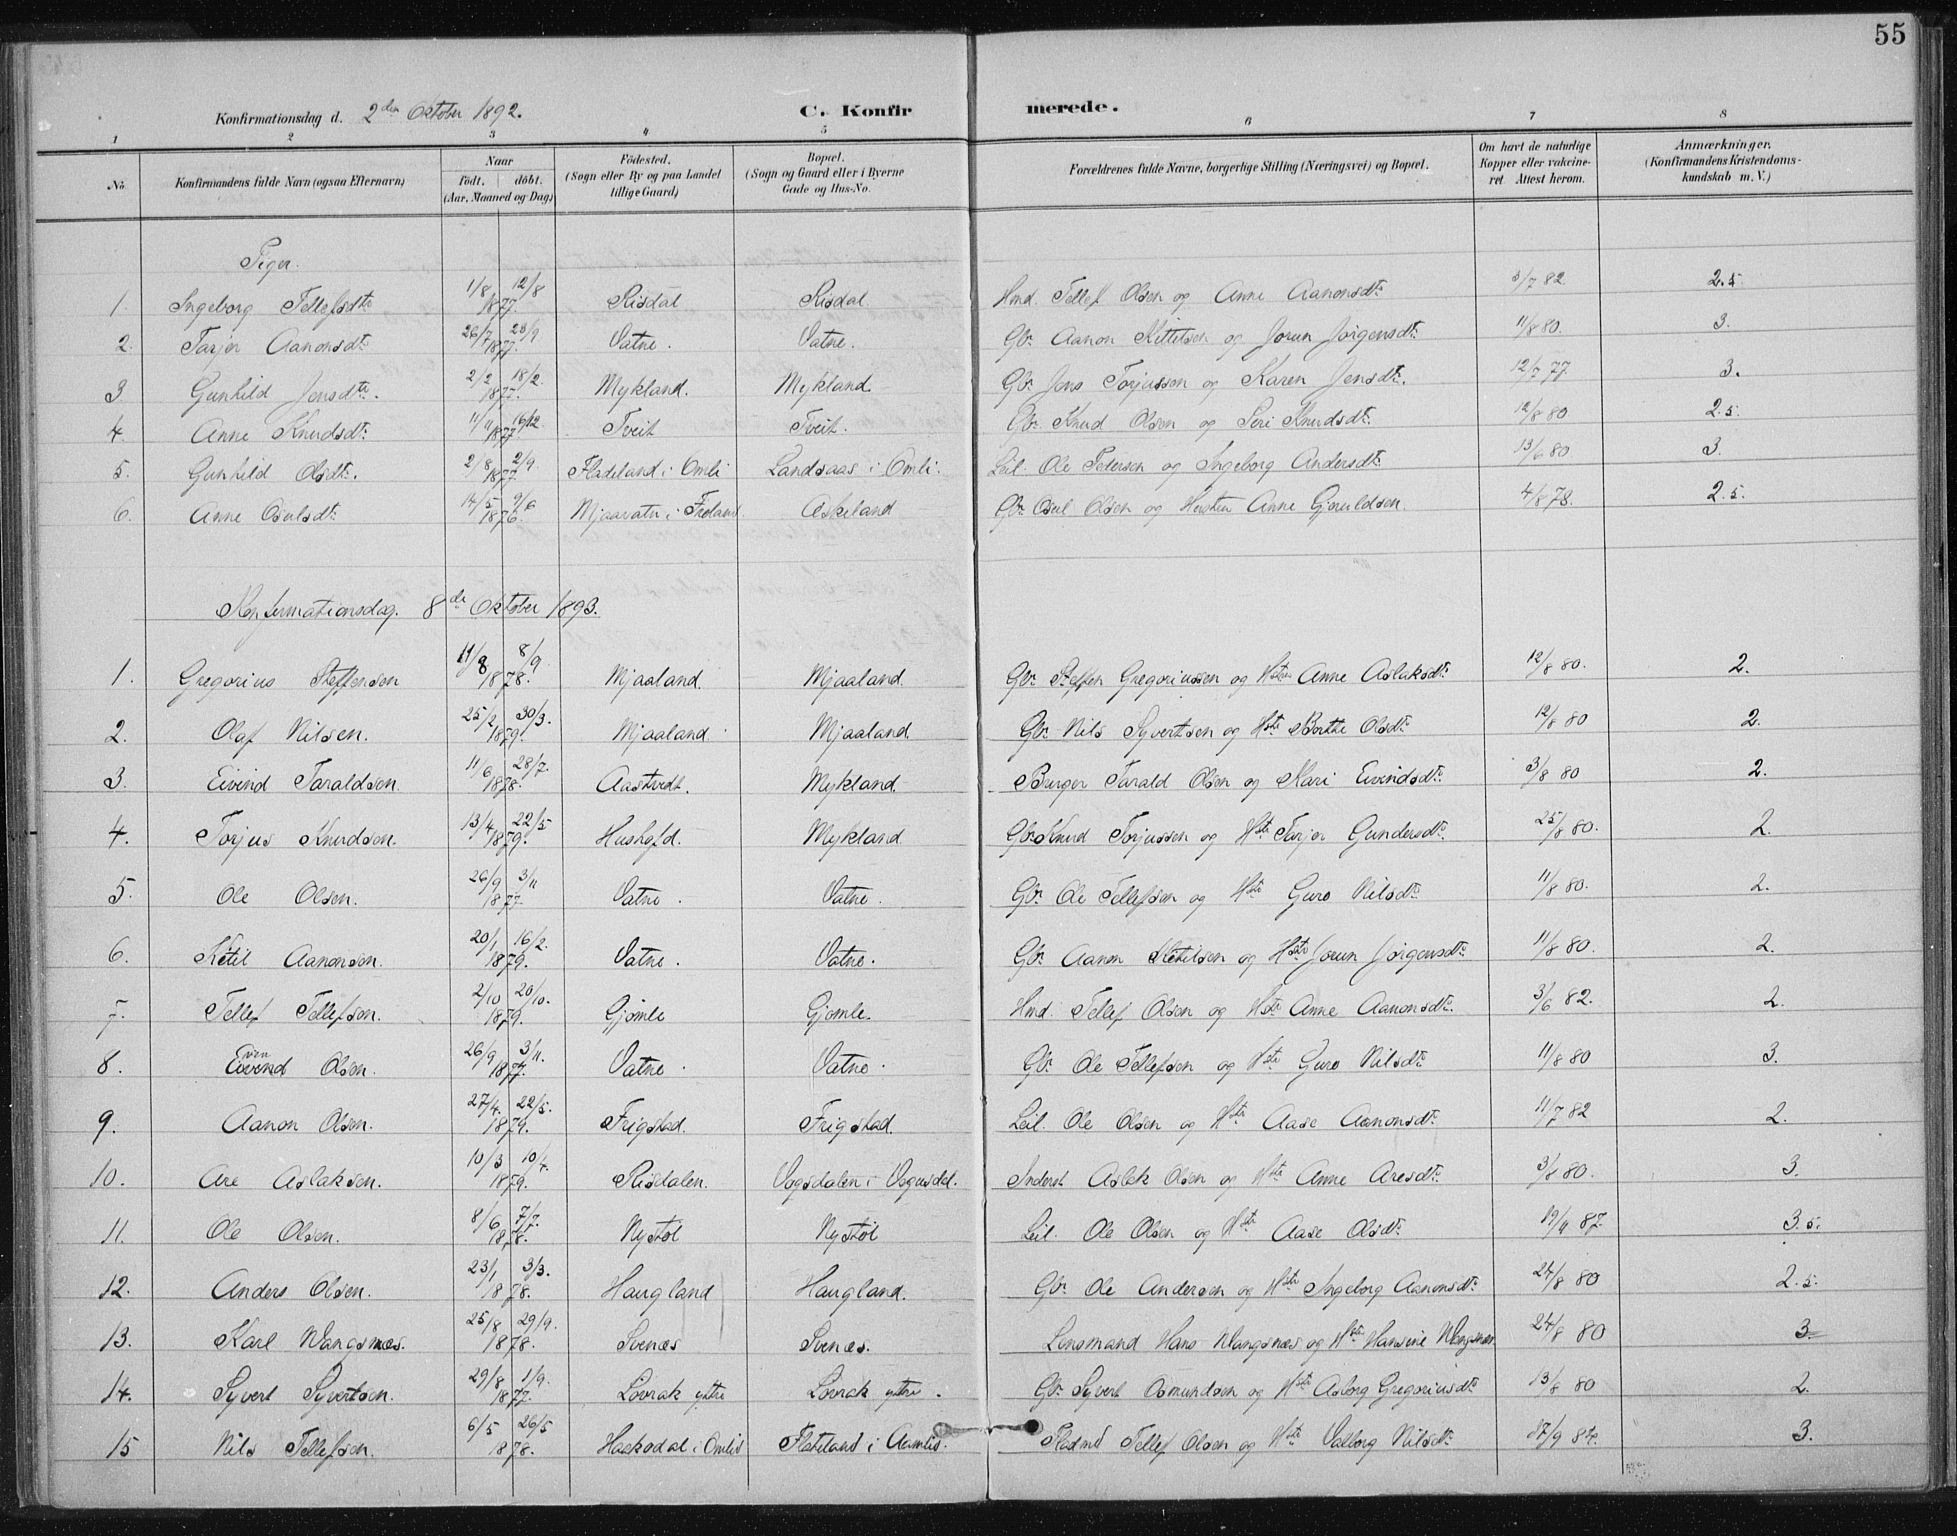 55
Konfirmationsdag d. 2den Oktober 1892. C. Konfirmerede.
1 2 3 4 5 6 7 8
No. Konfirmandens fulde Navn (ogsaa Efternavn) Naar Födt. döbt. (Aar, Maaned og Dag) Födested. (Sogn eller By og paa Landet tillige Gaard) Bopæl. (Sogn og Gaard eller i Byerne Gade og Hus-No. Forældrenes fulde Navne, borgerlige Stilling (Næringsvei) og Bopæl. Om havt de naturlige Kopper eller vakcineret Attest herom. Anmærkninger. (Konfirmandens Kristendomskundskab m. V.)
Piger.
1. Ingeborg Tellefsdtr 1/8 12/8 1877. Risdal Risdal Hmd. Tellef Olsen og Anne Aanonsdtr 3/7 82 2.5
2. Tarjer Aanonsdtr 26/7 23/9 1877. Vatne. Vatne. Gbr Aanon Kittilsen og Jorun Jörgensdtr 11/8 80. 3.
3 Gunhild Jensdtr. 2/2 18/2. 1877. Mykland. Mykland Gbr Jens Torjussen og Karen Jensdtr. 12/7 77 3.
4. Anne Knudsdtr. 11/11 16/12 1877. Tveit Tveit. Gbr Knud Olsen og Siri Knudsdtr. 12/8 80. 2.5.
5. Gunhild Olsdtr. 2/8 2/9. 1877. Fladeland i Omli Landsaas i Omli. Leil. Ole Pedersen og Ingeborg Andersdtr 13/6 80 3.
6. Anne Osulsdtr. 14/5 9/6 1876. Mjaavatn i Froland. Askeland Gbr Osul Olsen og Hustru Anne Gjeruldsen. 4/8 78. 2.5.
Konfirmationsdag. 8de Oktober 1893.
1. Gregorius Steffensen 11/8 8/9. 1878. Mjaaland. Mjaaland. Gbr Steffen Gregoriussen og Hstru Anne Aslaksdtr 12/8 80. 2.
2. Olaf Nilsen. 25/2 30/3. 1879. Mjaaland. Mjaaland. Gbr Nils Syvertsen og Hstr Berthe Olsdtr 12/8 80 2.
3. Eivind Taraldsen. 11/6 28/7. 1878. Aastvedt. Mykland Bruger Tarald Olsen og Kari Eivindsdtr. 3/8 80 2.
4. Torjus Knudsen. 13/4 22/5 1879. Hushofd. Mykland Gbr Knud Torjussen og Hstr Tarjer Gundersdtr. 25/8 80. 2.
5. Ole Olsen. 26/9 3/11 1877. Vatne. Vatne. Gbr Ole Tellefsen og Hstr Guro Nilsdtr 11/8 80. 2.
6. Ketil Aanonsen. 20/1 16/2. 1879. Vatne. Vatne. Gbr Aanon Ketilsen og Hstr Jorun Jörgensdtr. 11/8 80. 2.
7. Tellef Tellefsen. 2/10 20/10. 1879. Gjömle Gjömle. Hmd. Tellef Olsen og Hstr Anne Aanonsdtr. 3/6 82. 2.
8. Eivind Olsen. 26/9 3/11. 1877. Vatne. Vatne. Gbr Ole Tellefsen og Hstr Guro Nilsdtr 11/8 80 3.
9. Aanon Olsen. 27/4. 22/5. 1879. Frigstad. Frigstad. Leil. Ole Olsen og Hstr Aase Aanonsdtr. 11/7 82 2.
10. Are Aslaksen. 10/3 10/4. 1879. Risdalen. Vogsdalen i Vegusdal. Inderst Aslak Olsen og Hstr Anne Aresdtr. 3/8 80. 3.
11. Ole Olsen. 8/6 7/7. 1878. Nystöl Nystöl Leil. Ole Olsen og Hstr Aase Olsdtr. 19/4 87. 3.5.
12. Anders Olsen. 23/1 3/3. 1878. Haugland Haugland. Gbr Ole Andersen og Hstr Ingeborg Aanonsdtr. 24/8 80 2.5.
13. Karl Wangsnæs. 25/8 29/9. 1878. Svenæs Svenæs. Lensmand Hans Wangsnæs og Hstr Hansine Wangsnæs 24/8 80 3
14. Syvert Syvertsen. 29/8 1/9. 1877. Lovrak yttre Lovrak yttre. Gbr Syvert Osmundsen og Hstr Asborg Gregoriusdtr 13/8 80 2.
15 Nils Tellefsen. 6/5 26/5 1878. Haskodal i Omlid Flateland i Aamlid. Pladmd Tellef Olsen og Hstr Valborg Nilsdtr 17/9 3.